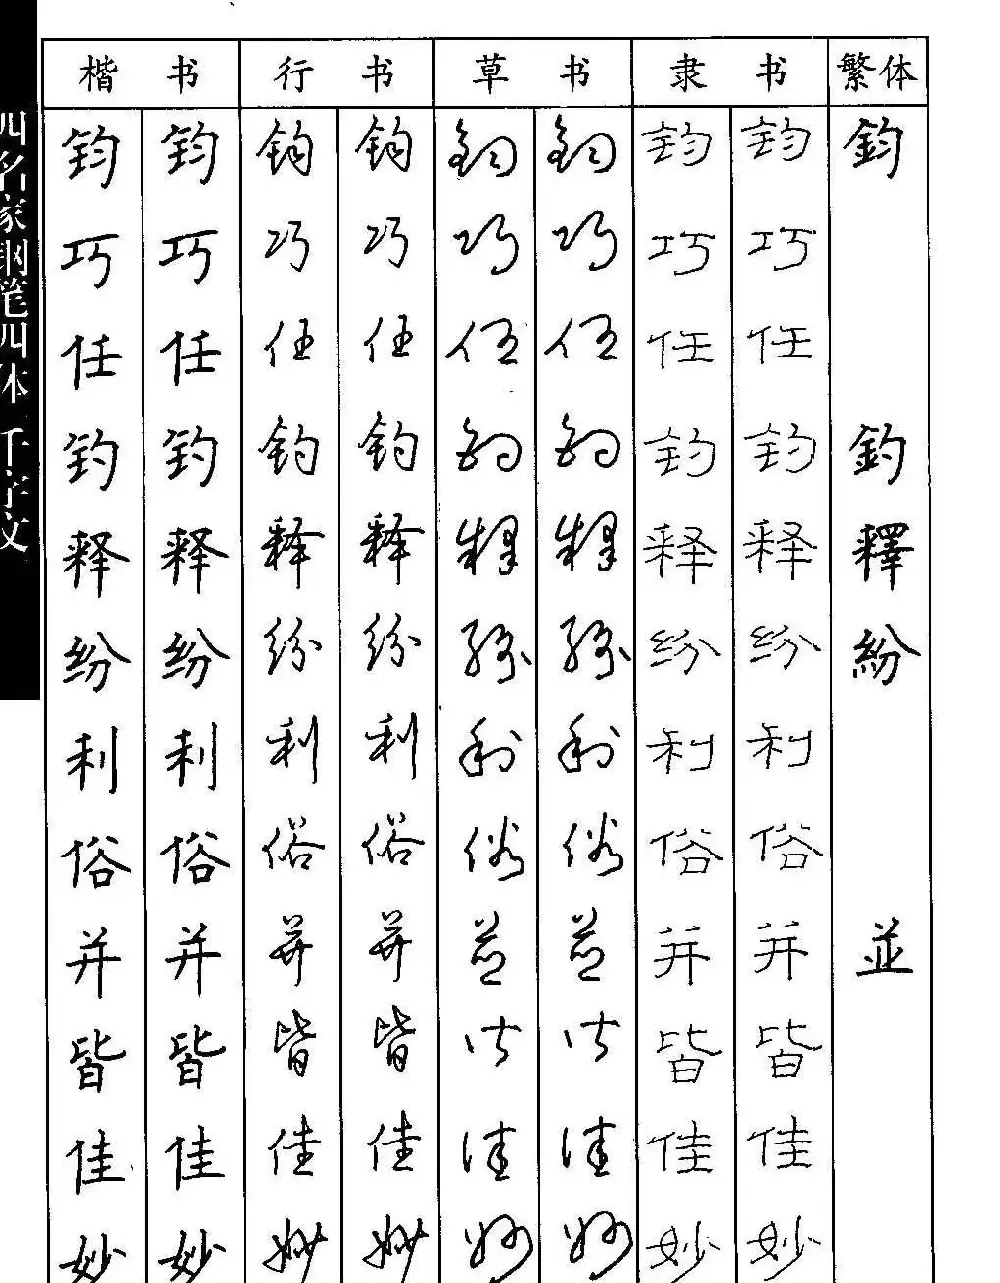 四名家钢笔四体 千字文
楷书 行书 草书 隶书 繁体
钧 钧 钧 钧 钧 钧 钧 钧 鈞
巧 巧 巧 巧 巧 巧 巧 巧
任 任 任 任 任 任 任 任
钓 钓 钓 钓 钓 钓 钓 钓 釣
释 释 释 释 释 释 释 释 釋
纷 纷 纷 纷 纷 纷 纷 纷 紛
利 利 利 利 利 利 利 利
俗 俗 俗 俗 俗 俗 俗 俗
并 并 并 并 并 并 并 并 並
皆 皆 皆 皆 皆 皆 皆 皆
佳 佳 佳 佳 佳 佳 佳 佳
妙 妙 妙 妙 妙 妙 妙 妙